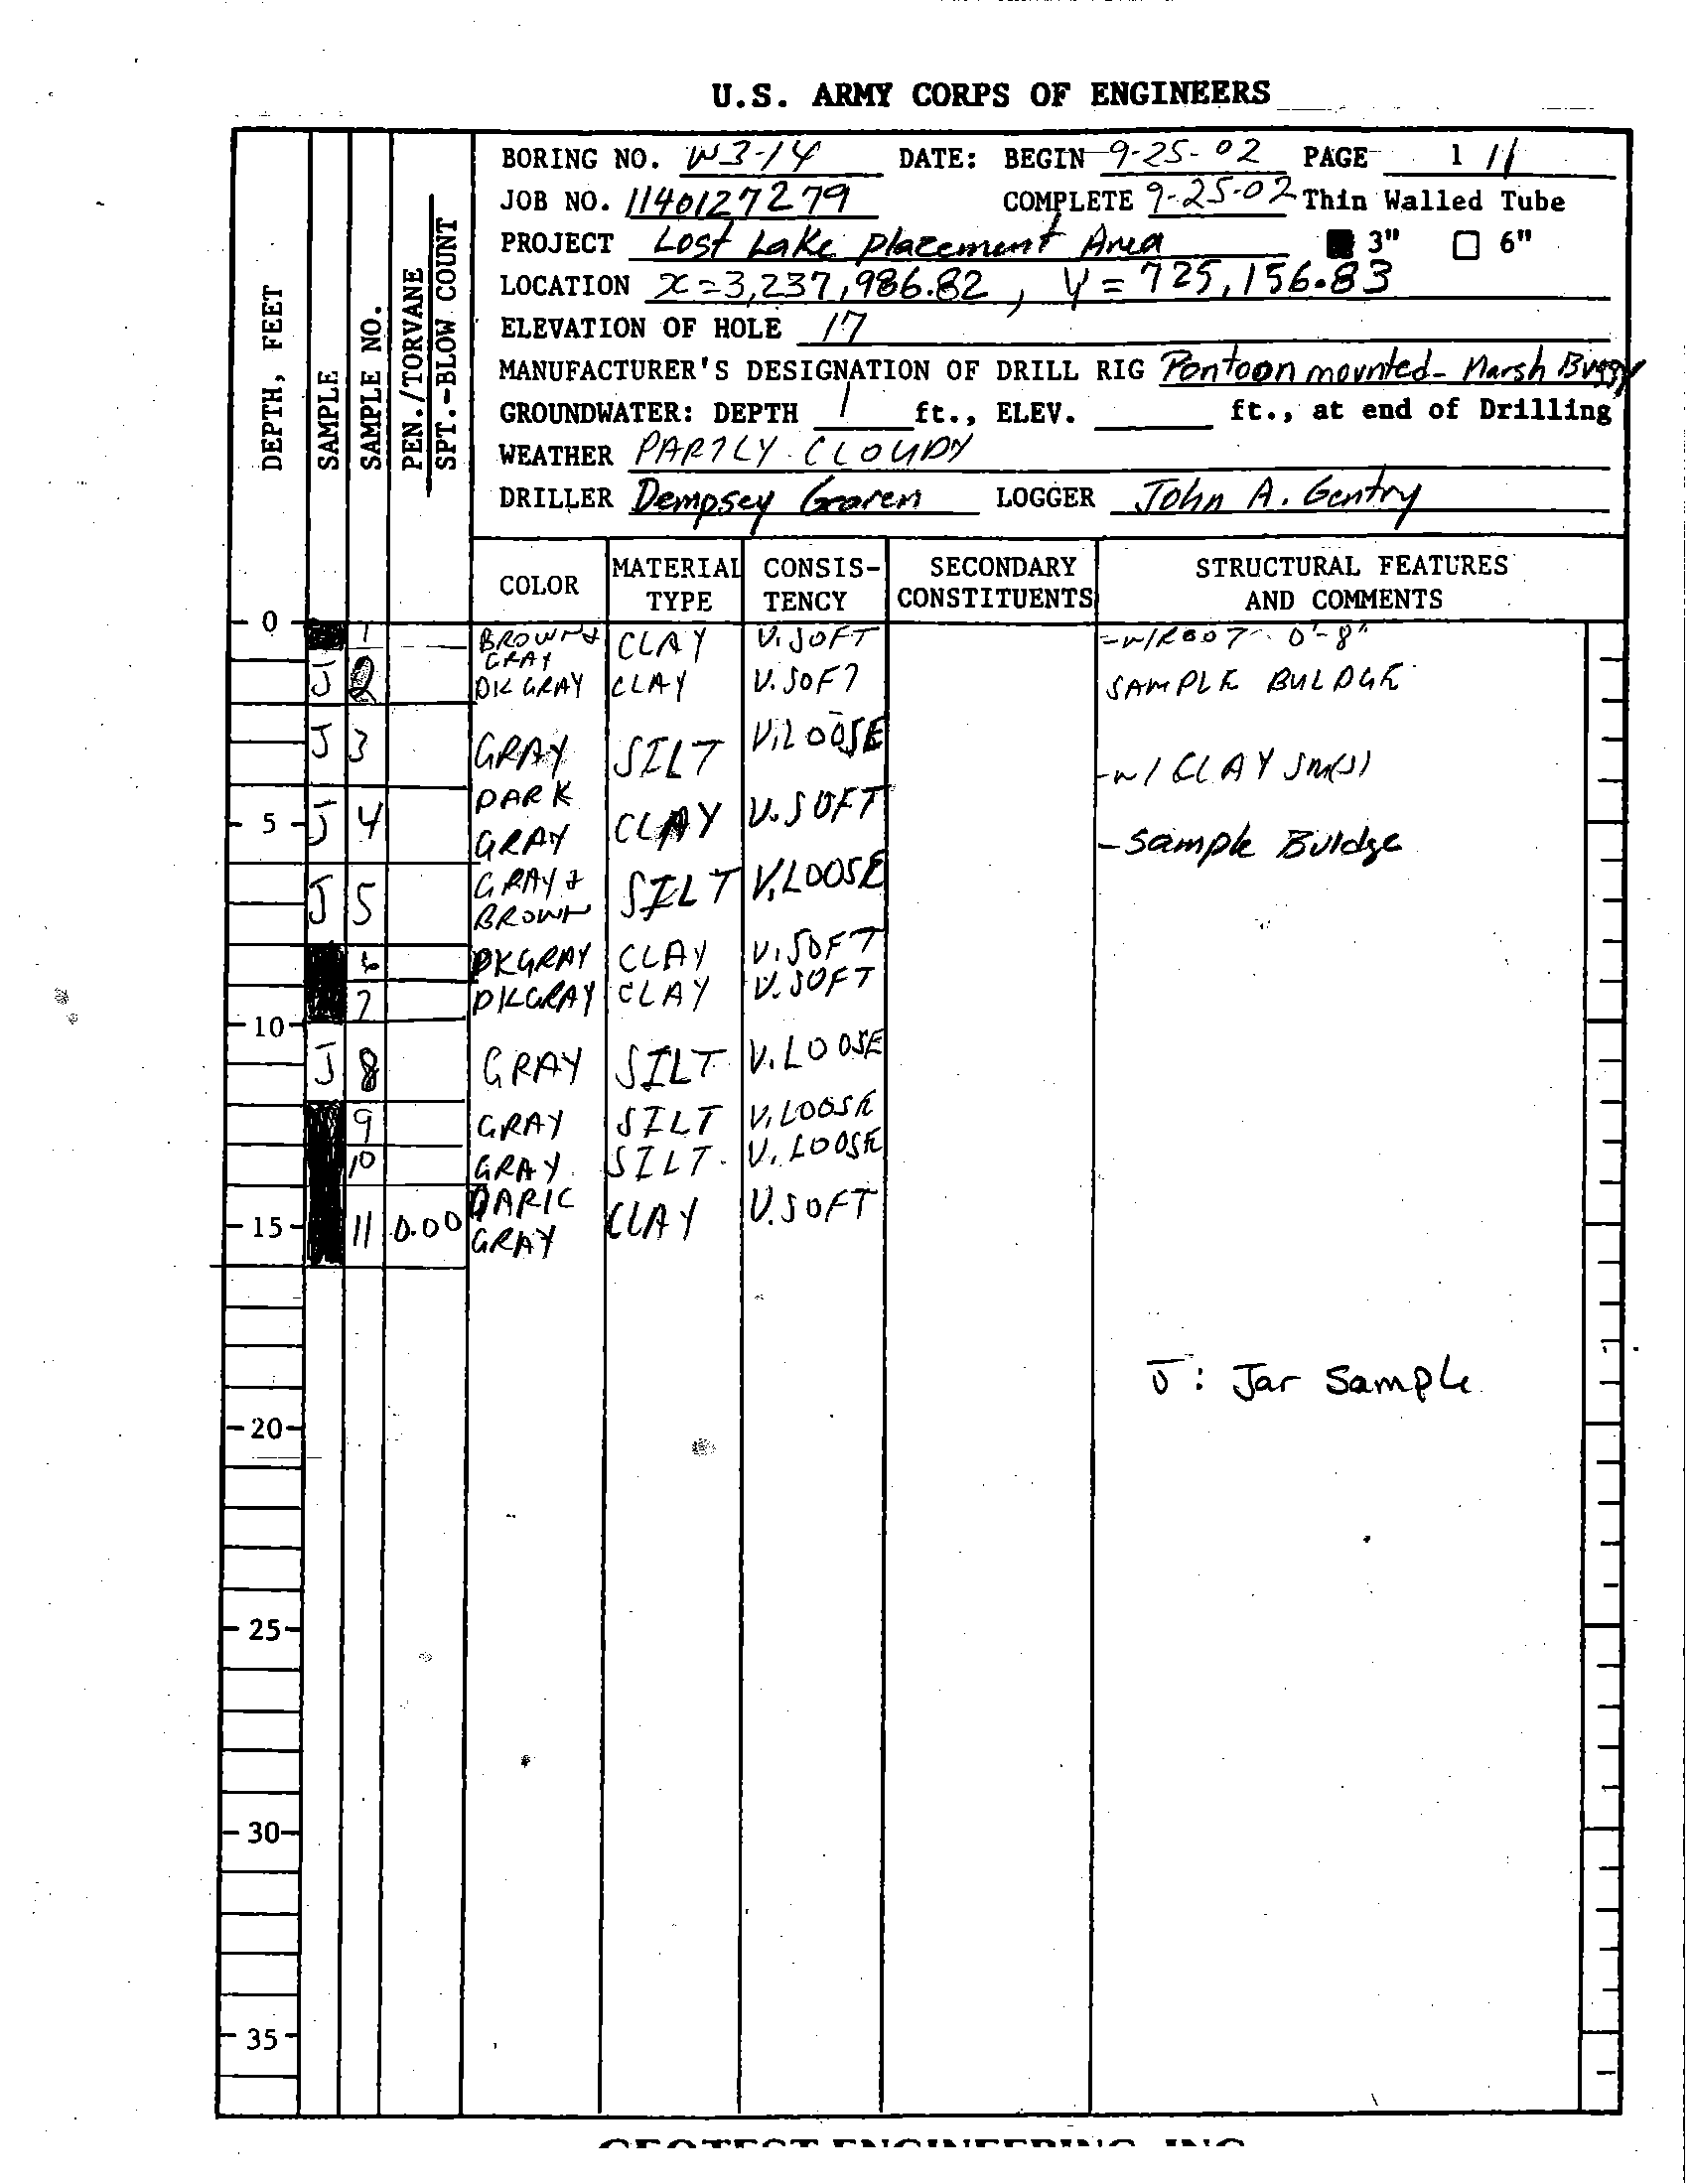 U.S. ARMY CORPS OF ENGINEERS
DEPTH, FEET
SAMPLE
SAMPLE NO.
PEN./TORVANE
SPT.-BLOW COUNT
BORING NO. W3-14 DATE: BEGIN 9-25-02 PAGE 1 / 1
JOB NO. 1140127279 COMPLETE 9-25-02 Thin Walled Tube
PROJECT Lost Lake Placement Area 3" 6"
LOCATION x=3,237,986.82, y=725,156.83
ELEVATION OF HOLE 17
MANUFACTURER'S DESIGNATION OF DRILL RIG Pontoon mounted- Marsh Buggy
GROUNDWATER: DEPTH 1 ft., ELEV. ft., at end of Drilling
WEATHER PARTLY CLOUDY
DRILLER Dempsey LOGGER John A. Gentry
COLOR MATERIAL TYPE CONSIS-TENCY SECONDARY CONSTITUENTS STRUCTURAL FEATURES AND COMMENTS
0 1 BROWN & GRAY CLAY V. SOFT -W/ROOT 0'-8"
J 2 DK GRAY CLAY V. SOFT SAMPLE BULDGE
J 3 GRAY SILT V. LOOSE -W/ CLAY SM(S)
5 J 4 DARK GRAY CLAY V. SOFT -Sample Buldge
J 5 GRAY & BROWN SILT V. LOOSE
6 DK GRAY CLAY V. SOFT
7 DK GRAY CLAY V. SOFT
10
J 8 GRAY SILT V. LOOSE
9 GRAY SILT V. LOOSE
10 GRAY SILT V. LOOSE
15 11 0.00 DARK GRAY CLAY V. SOFT
J: Jar Sample
20
25
30
35
GEOTEST ENGINEERING, INC